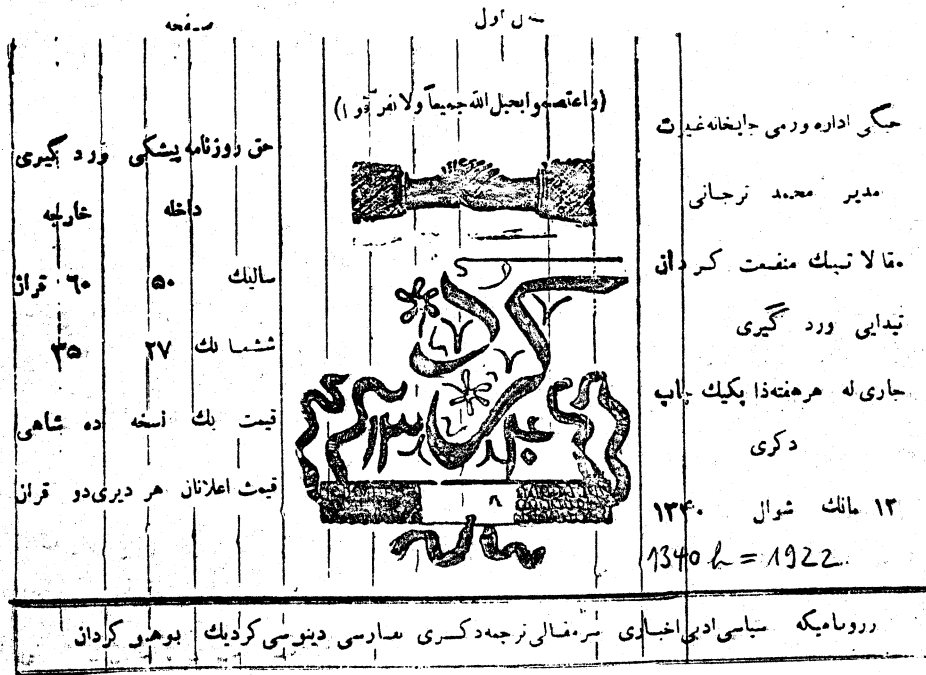 سال اول
صفحه
جیگی اداره ورمی چاپخانه غیرت
مدیر محمد ترجانی
مقالاتیك منفعت كردان
تیدایی ورد گیری
جاری له هر هفته‌ذا یكیك چاپ
دكری
١٣ مانك شوال ١٣٤٠
1340 h = 1922
(واعتصموا بحبل الله جمیعاً ولا تفرقوا)
كرد
٨
حق روزنامه پیشكی ورد گیری
داخله خارجه
سالیك ٥٠ ٦٠ قران
ششما نك ٢٧ ٣٥
قیمت یك نسخه ده شاهی
قیمت اعلانان هر دیری دو قران
سیاسی ادبی اخباری سرمقالی ترجمه دكری فارسی دینوسی كردیك بوهمو كردان